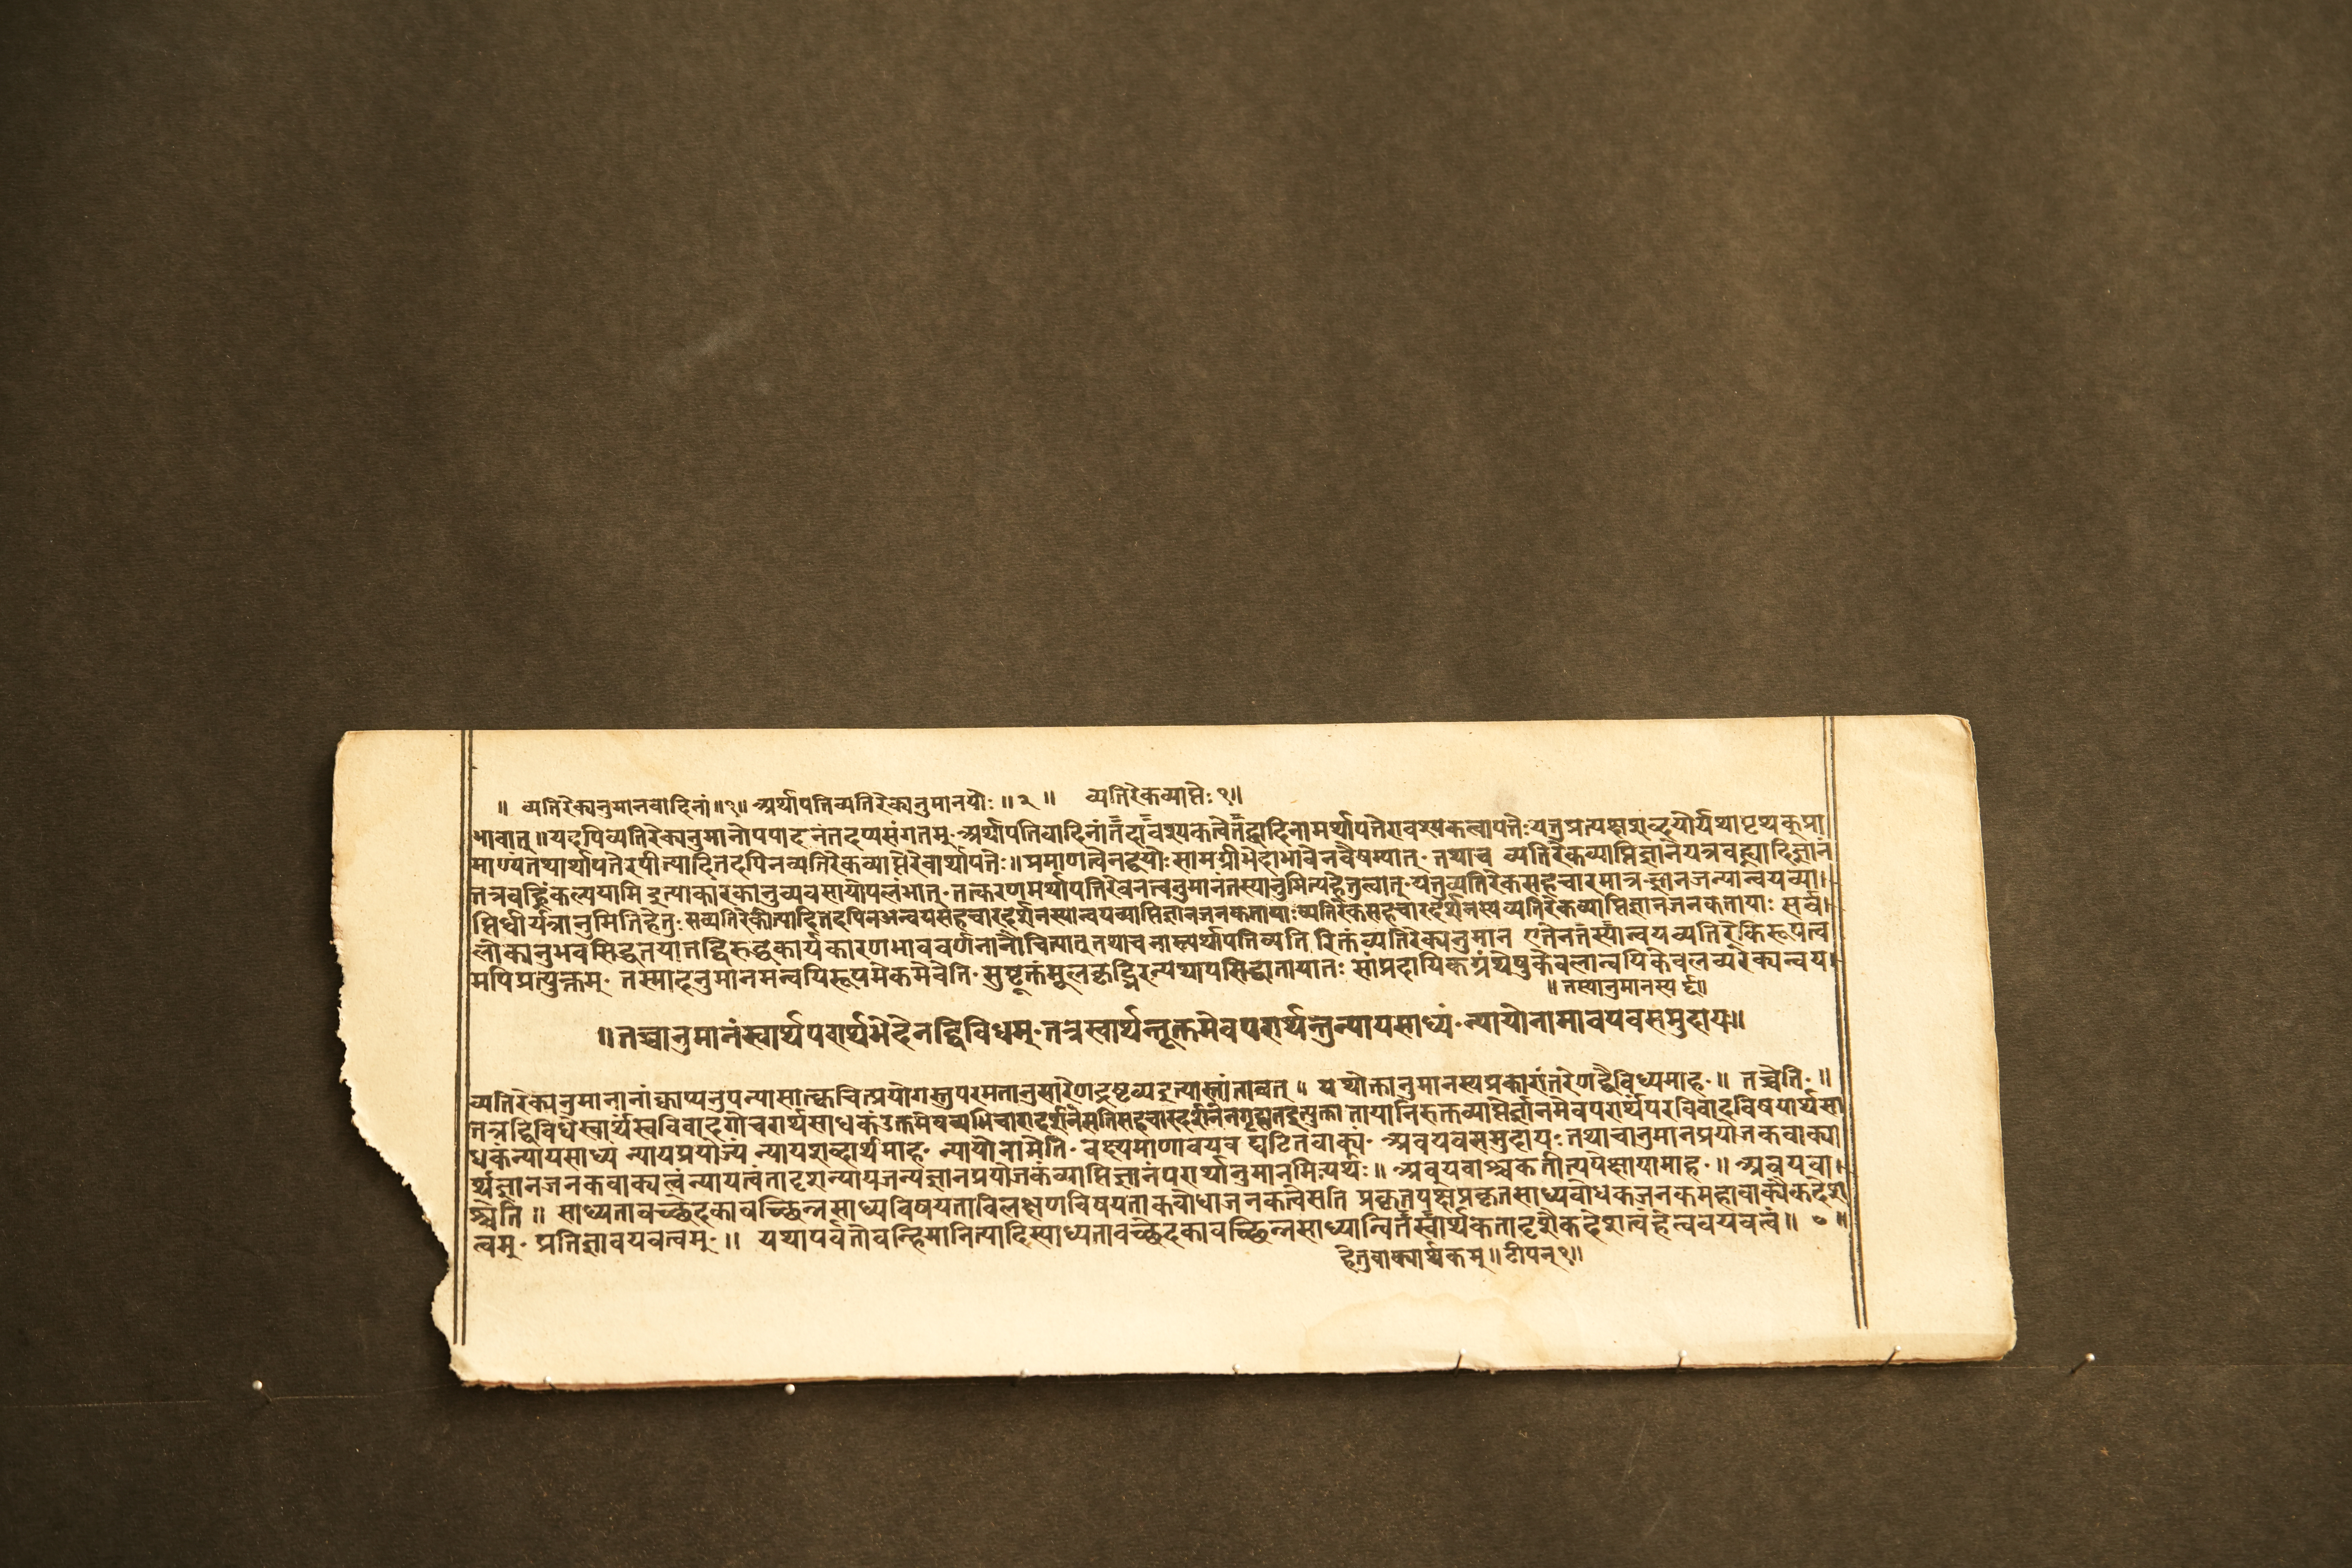 ॥ व्यतिरेक्यनुमानवादिनां॥१॥ अर्थापत्तिव्यतिरेक्यनुमानयोः ॥२॥ व्यतिरेकव्याप्तेः १॥
भावात्॥यदपिव्यतिरेक्यनुमानोपपादनंतदप्यसंगतम्·अर्थापत्तिवादिनांतदावश्यकत्वेतद्वादिनामर्थापत्तेरावश्यकत्वापत्तेःयत्तुप्रत्यक्षशब्दयोर्यथापृथक्प्रा
माण्यंतथार्थापत्तेरपीत्यादितदपिनव्यतिरेकव्याप्तेरेवार्थापत्तेः॥प्रमाणत्वेनद्वयोःसामग्रीभेदाभावेनवैषम्यात्·तथाच व्यतिरेकव्याप्तिज्ञानेयत्रवह्न्यादिज्ञानं
तत्रवह्निंकल्पयामि इत्याकारकानुव्यवसायोपलंभात्·तत्करणमर्थापत्तिरेवनत्वनुमानंतस्यानुमित्यहेतुत्वात्·यत्तुव्यतिरेकसहचारमात्र ज्ञानजन्यान्वयव्या
प्तिधीर्यत्रानुमितिहेतुः सव्यतिरेकीत्यादितदपिनअन्वयसहचारदर्शनस्यान्वयव्याप्तिज्ञानजनकतायाःव्यतिरेकसहचारदर्शनस्यव्यतिरेकव्याप्तिज्ञानजनकतायाः सर्व
लोकानुभवसिद्धतयातद्विरुद्धकार्यकारणभाववर्णनानौचित्यात् तथाच नास्त्यर्थापत्तिव्यतिरिक्तंव्यतिरेक्यनुमान एतेनतस्यान्वयव्यतिरेकिरूपत्व
मपिप्रत्युक्तम्· तस्मादनुमानमन्वयिरूपमेकमेवेति·सुष्टूक्तंमूलकृद्भिरन्यथापसिद्धातायातः सांप्रदायिकग्रंथेषुकेवलान्वयिकेवलव्यरेक्यन्वय
॥ तस्यानुमानस्य
॥तच्चानुमानंस्वार्थपरार्थभेदेनद्विविधम्·तत्रस्वार्थन्तूक्तमेवपरार्थन्तुन्यायसाध्यं·न्यायोनामावयवसमुदायः॥
व्यतिरेक्यनुमानानांक्वाप्यनुपन्यासात्क्वचित्प्रयोगस्तुपरमतानुसारेणद्रष्टव्यइत्यास्तांतावत् ॥ यथोक्तानुमानस्यप्रकारांतरेणद्वैविध्यमाह·॥ तच्चेति·॥
तत्रद्विविधेस्वार्थंस्वविवादगोचरार्थसाधकंउक्तमेवव्यभिचारादर्शनेसतिसहचारदर्शनेनगृह्यतइत्युक्ता तायानिरुक्तव्याप्तेर्ज्ञानमेवपरार्थंपरविवादविषयार्थसा
धकंन्यायसाध्य न्यायप्रयोज्यं न्यायशब्दार्थमाह· न्यायोनामेति·वक्ष्यमाणावयव घटितवाक्यं· अवयवसमुदायः तथाचानुमानप्रयोजकवाक्या
र्थज्ञानजनकवाक्यत्वंन्यायत्वंतादृशन्यायजन्यज्ञानप्रयोजकंव्याप्तिज्ञानंपरार्थानुमानमित्यर्थः॥ अवयवाश्चकतीत्यपेक्षायामाह·॥ अवयवा
श्चेति ॥ साध्यतावच्छेदकावच्छिन्नसाध्यविषयताविलक्षणविषयताकबोधाजनकत्वेसति प्रकृतपक्षेप्रकृतसाध्यबोधकजनकमहावाक्यैकदेश
त्वम्· प्रतिज्ञावयवत्वम्·॥ यथापर्वतोवन्हिमानित्यादिसाध्यतावच्छेदकावच्छिन्नसाध्यान्वितस्वार्थकतादृशैकदेशत्वंहेत्ववयवत्वं॥ ७ ॥
हेतुवाक्यार्थकम्॥टीपन्१॥